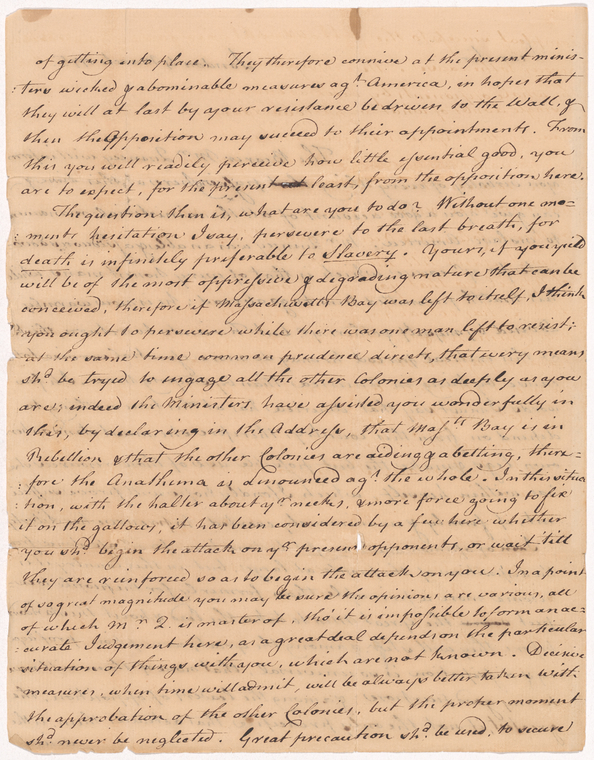 of getting into place. They therefore connive at the present minis-
:ters wicked & abominable measures ag.t America, in hopes that
they will at last by your resistance be driven to the Wall, &
then the Opposition may succeed to their appointments. From
this you will readily perceive how little essential good, you
are to expect, for the present at least, from the opposition here.
The question then is, what are you to do? Without one mo=
:ments hesitation I say, persevere to the last breath, for
death is infinitely preferable to Slavery. Yours, if you yield
will be of the most oppressive & degrading nature that can be
conceived, therefore if Massachusetts Bay was left to itself, I think
you ought to persevere while there was one man left to resist;
at the same time common prudence directs, that every means
sh.d be tryed to engage all the other Colonies as deeply as you
are; indeed the Ministers have assisted you wonderfully in
this, by declaring in the Address, that Mass.tts Bay is in
Rebellion & that the other Colonies are aiding & abetting, there=
:fore the Anathema is denounced ag.t the whole. In this situa
:tion, with the halter about y.r necks, & more force going to fix
it on the gallows, it has been considered by a few here whether
you sh.d begin the attack on y.r present opponents, or wait till
they are reinforced so as to begin the attack on you. In a point
of so great magnitude you may be sure the opinions are various, all
of which M.r Q. is master of, tho' it is impossible to form an ac=
:curate Judgement here, as a great deal depends on the particular
situation of things with you, which are not known. Decisive
measures, when time will admit, will be always better taken with
the approbation of the other Colonies, but the proper moment
sh.d never be neglected. Great precaution sh.d be used, to secure